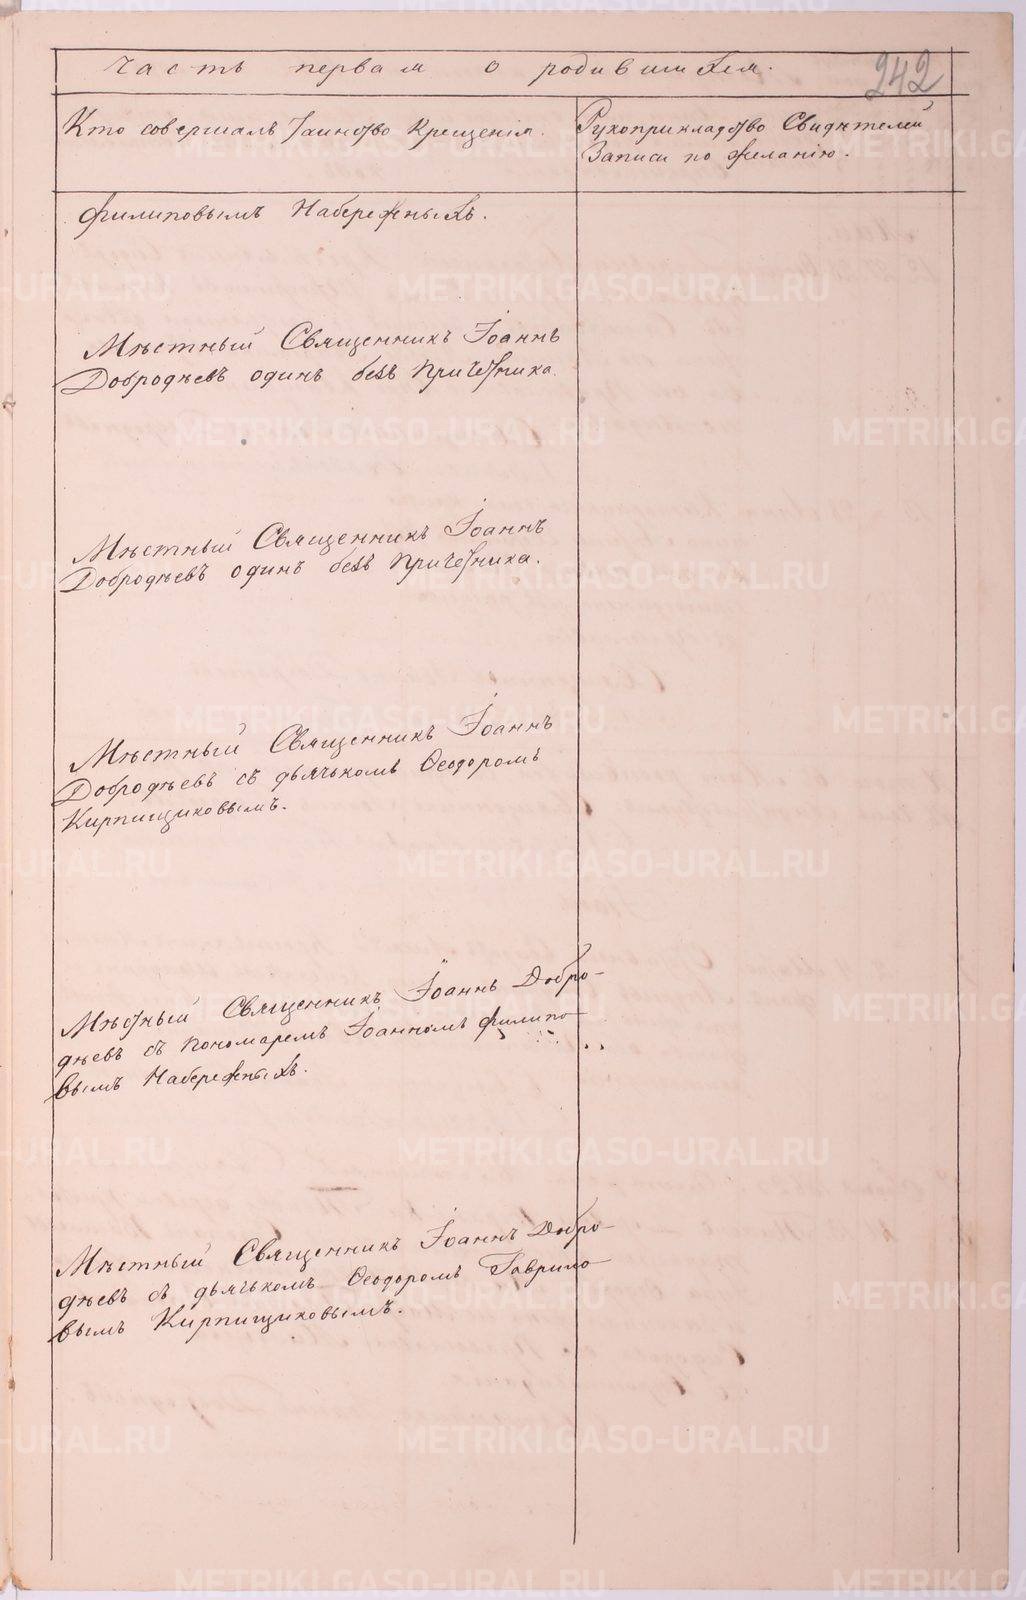 Часть первая о родившихся.
242
Кто совершалъ Таинство Крещенія.
Рукоприкладство Свидѣтелей
Записи по желанію.
Филиповымъ Набережныхъ.
Мѣстный Священникъ Іоаннъ
Добродѣевъ одинъ безъ Причетника.
Мѣстный Священникъ Іоаннъ
Добродѣевъ одинъ безъ Причетника.
Мѣстный Священникъ Іоаннъ
Добродѣевъ съ дьячькомъ Ѳеодоромъ
Кирпищиковымъ.
Мѣстный Священникъ Іоаннъ Добро-
дѣевъ съ Пономаремъ Іоанномъ Филипо-
вымъ Набережныхъ.
Мѣстный Священникъ Іоаннъ Добро-
дѣевъ съ дьячькомъ Ѳеодоромъ Гаврило-
вымъ Кирпищиковымъ.
METRIKI.GASO-URAL.RU